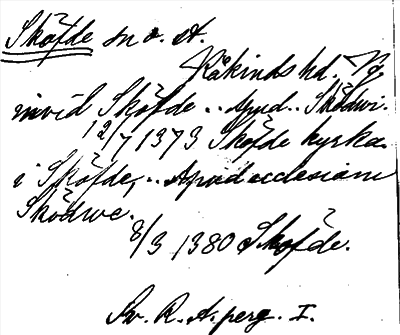 Sköfde sn o. st.
Kåkinds hd. Vg
invid Sköfde .. apud .. Sködwi.
12/7 1373 Sköfde kyrka.
i Sköfde, .. Apud ecclesiam
Sködwe.
8/3 1380 Skofde.
Sv. R. A. perg. I.